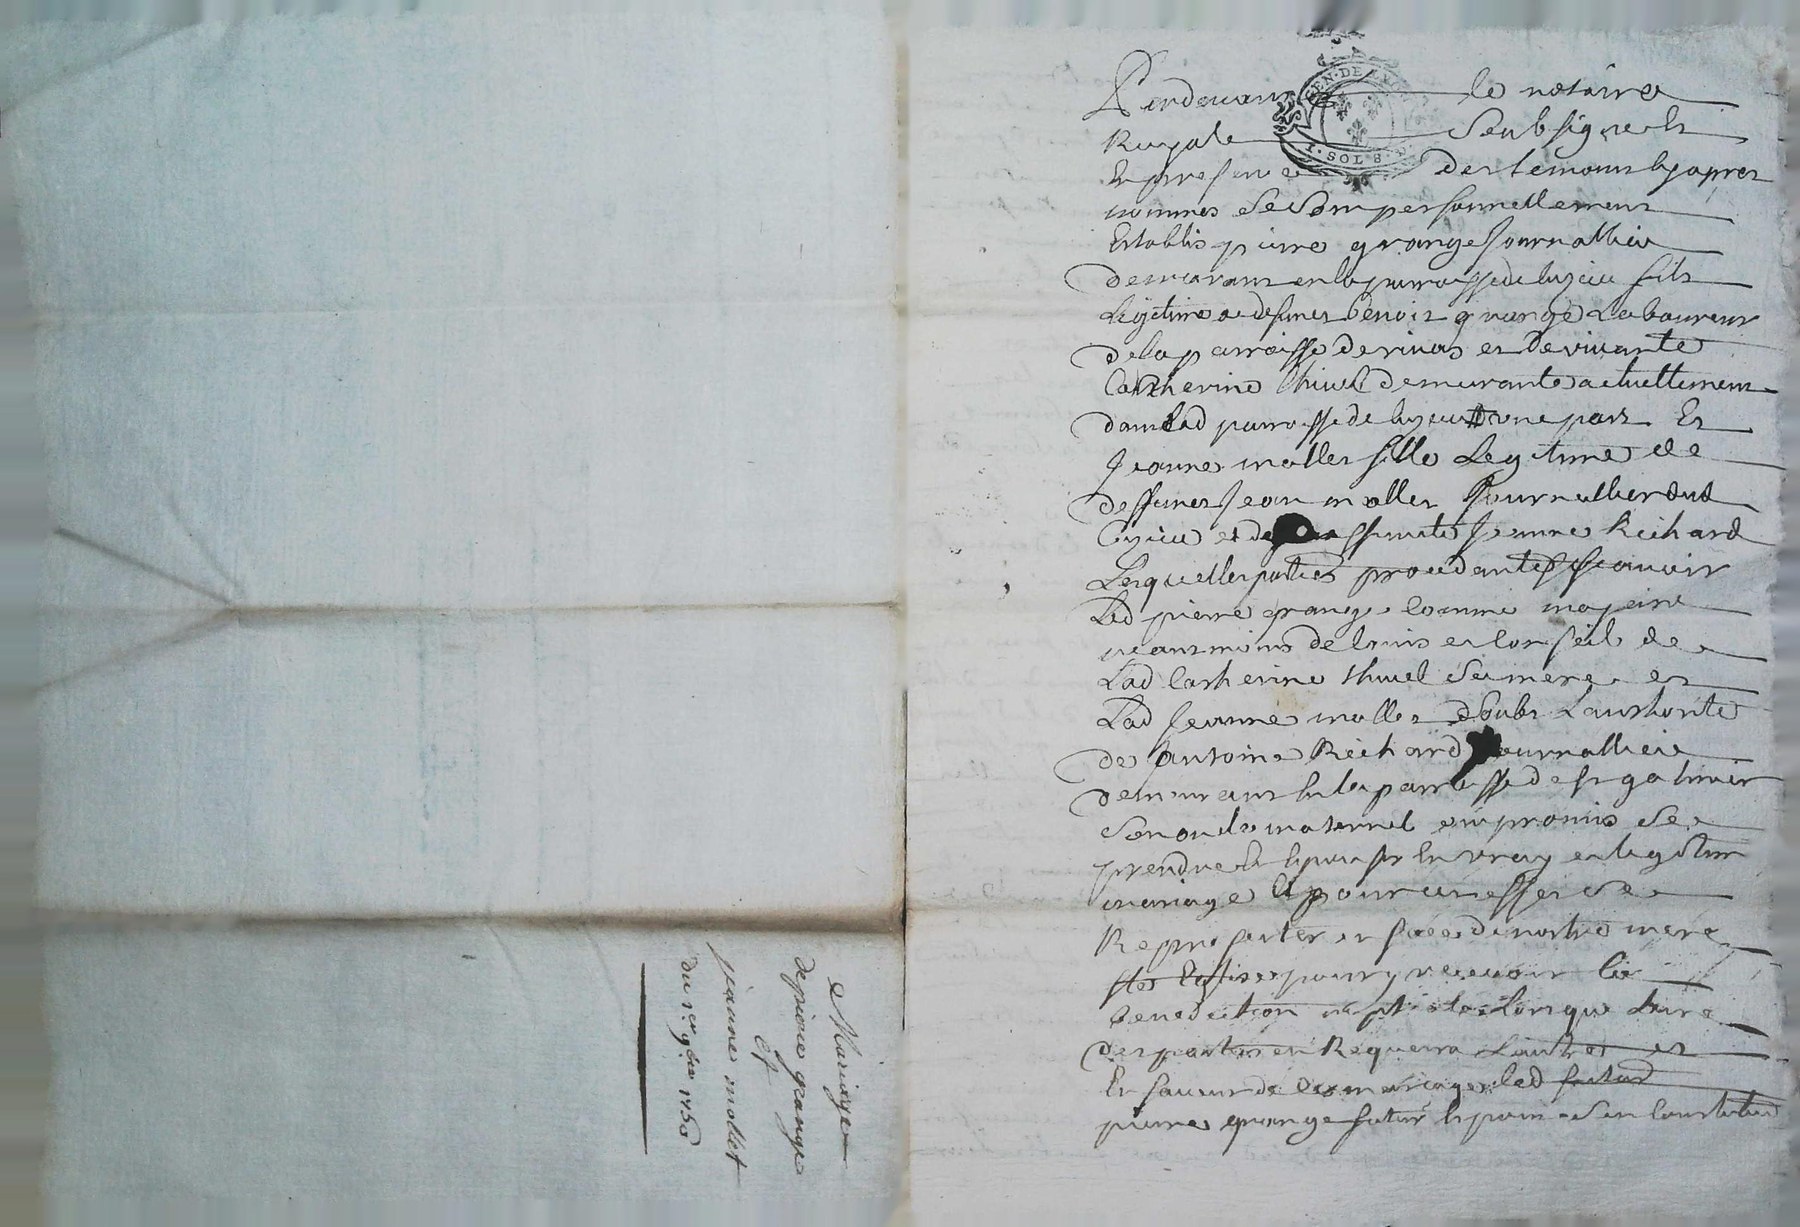 Mariage
de pierre grange
Et
jeanne mollet
du 1er 9bre 1750
GEN. DE LYON
1. SOL 8. D
Pardevant le notaire
Royale soubsignè Et
En presence des temoins cy apres
nommes se sont personnellement
Establis pierre grange journallier
demeurant en la parroisse de luzieu fils
Legitime a deffunct benoit grange Laboureur
de la parroisse de rivas et de vivante
Catherine thivel demeurante actuellement
dans lad parroisse de luzieu d'une part Et
Jeanne mollet fille Legitime de
deffunct Jean mollet Journallier dud
luzieu et de deffuncte Jeanne Richard
Lesquelles parties procedantes scavoir
Led pierre grange comme majeur
neanmoins de lavis et conseil de
Lad Catherine thivel sa mere et
Lad Jeanne mollet de Lauthorité
de antoine Richard journallier
demeurant en la parroisse de st galmier
son oncle maternel ont promis se
prendre et epouser en vray et legitime
mariage Et pour cet effet se
Representer en face de nostre mere
ste Eglise pour y recevoir la
benediction nuptiale Lorsque Lune
des parties en Requerra Lautre et
En faveur de ce mariage led futur
pierre grange futur Epoux s'est constitué